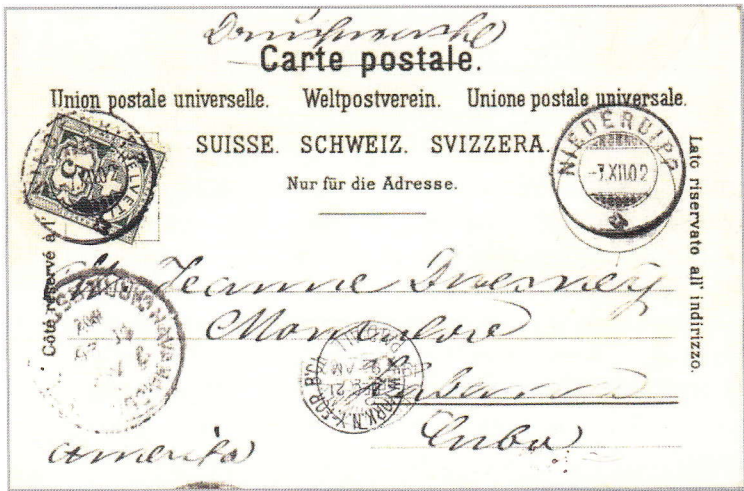 Drucksache
Carte postale.
Union postale universelle. Weltpostverein. Unione postale universale.
SUISSE. SCHWEIZ. SVIZZERA.
Nur für die Adresse.
HELVETIA
5
NIEDERBIPP
-7.XII.02
Côté réservé à l'
Lato riservato all' indirizzo.
Jeanne Duesney
NEW YORK, N.Y. FOR B'CH
DEC 21
AM
Habana
Cuba
America